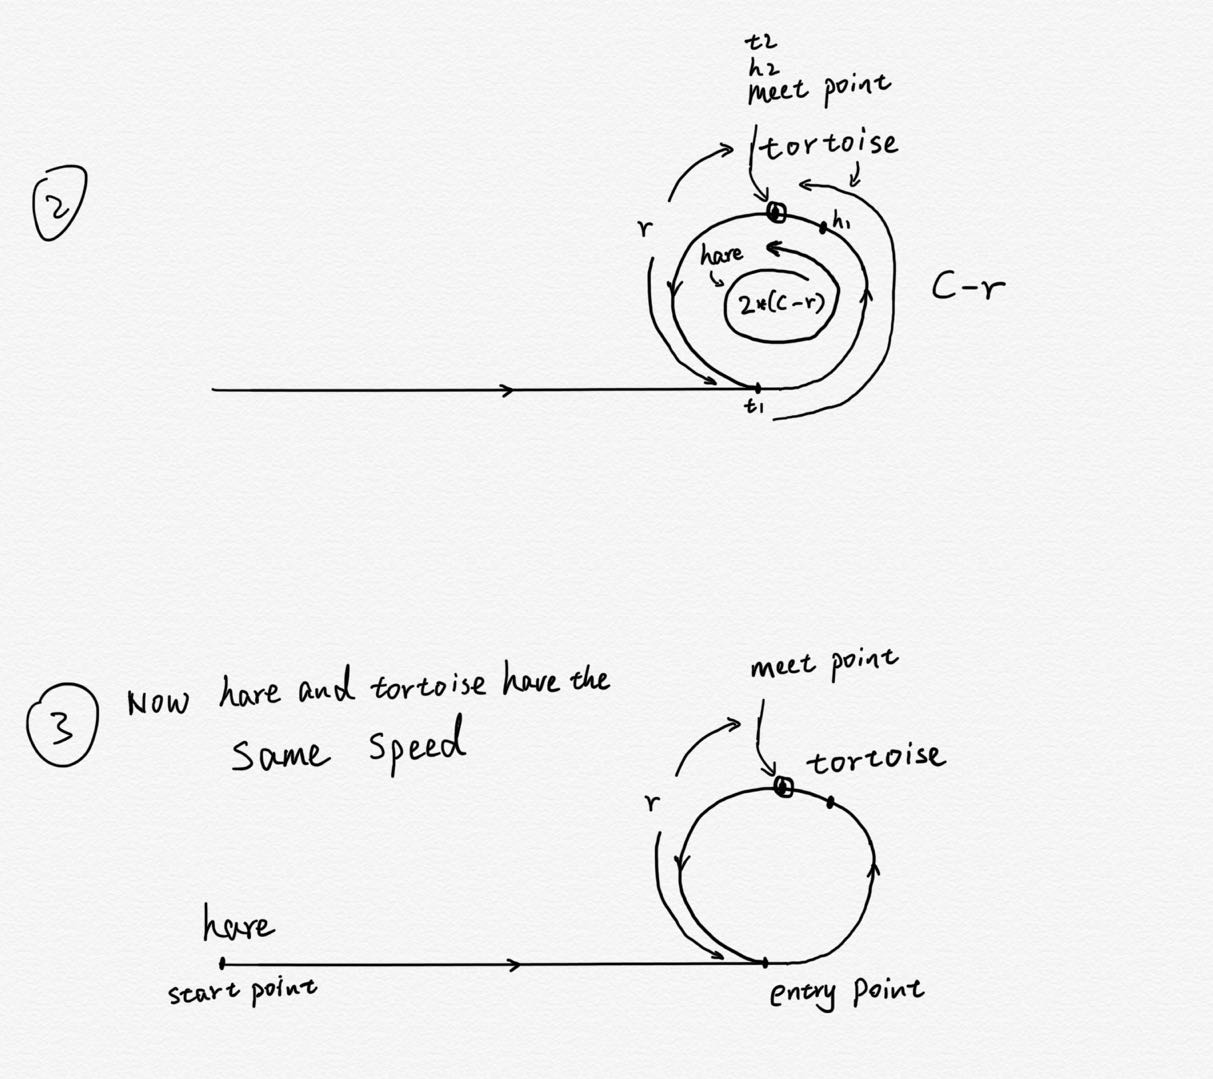 2
t2
h2
meet point
tortoise
r
h1
hare
2*(C-r)
C-r
t1
3
Now hare and tortoise have the
same speed
meet point
tortoise
r
hare
start point
entry point